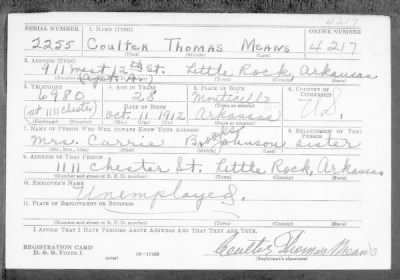 4217
SERIAL NUMBER 1. NAME (Print) ORDER NUMBER
2255 Coulter Thomas Means 4217
(First) (Middle) (Last)
2. ADDRESS (Print)
911 West 12th St. Little Rock, Arkansas
(Number and street or R. F. D. number) (Town) (County) (State)
3. TELEPHONE 4. AGE IN YEARS 5. PLACE OF BIRTH 6. COUNTRY OF CITIZENSHIP
6980 28 Monticello
(at 1111 Chester) DATE OF BIRTH (Town or county)
Oct. 11 1912 Arkansas U.S.
(Exchange) (Number) (Mo.) (Day) (Yr.) (State or country)
7. NAME OF PERSON WHO WILL ALWAYS KNOW YOUR ADDRESS 8. RELATIONSHIP OF THAT PERSON
Mrs. Carrie Brooks Johnson sister
(Mr., Mrs., Miss) (First) (Middle) (Last)
9. ADDRESS OF THAT PERSON
1111 Chester St. Little Rock, Arkansas
(Number and street or R. F. D. number) (Town) (County) (State)
10. EMPLOYER'S NAME
Unemployed.
11. PLACE OF EMPLOYMENT OR BUSINESS
(Number and street or R. F. D. number) (Town) (County) (State)
I AFFIRM THAT I HAVE VERIFIED ABOVE ANSWERS AND THAT THEY ARE TRUE.
REGISTRATION CARD
D. S. S. FORM 1 Coulter Thomas Means
(Registrant's signature)